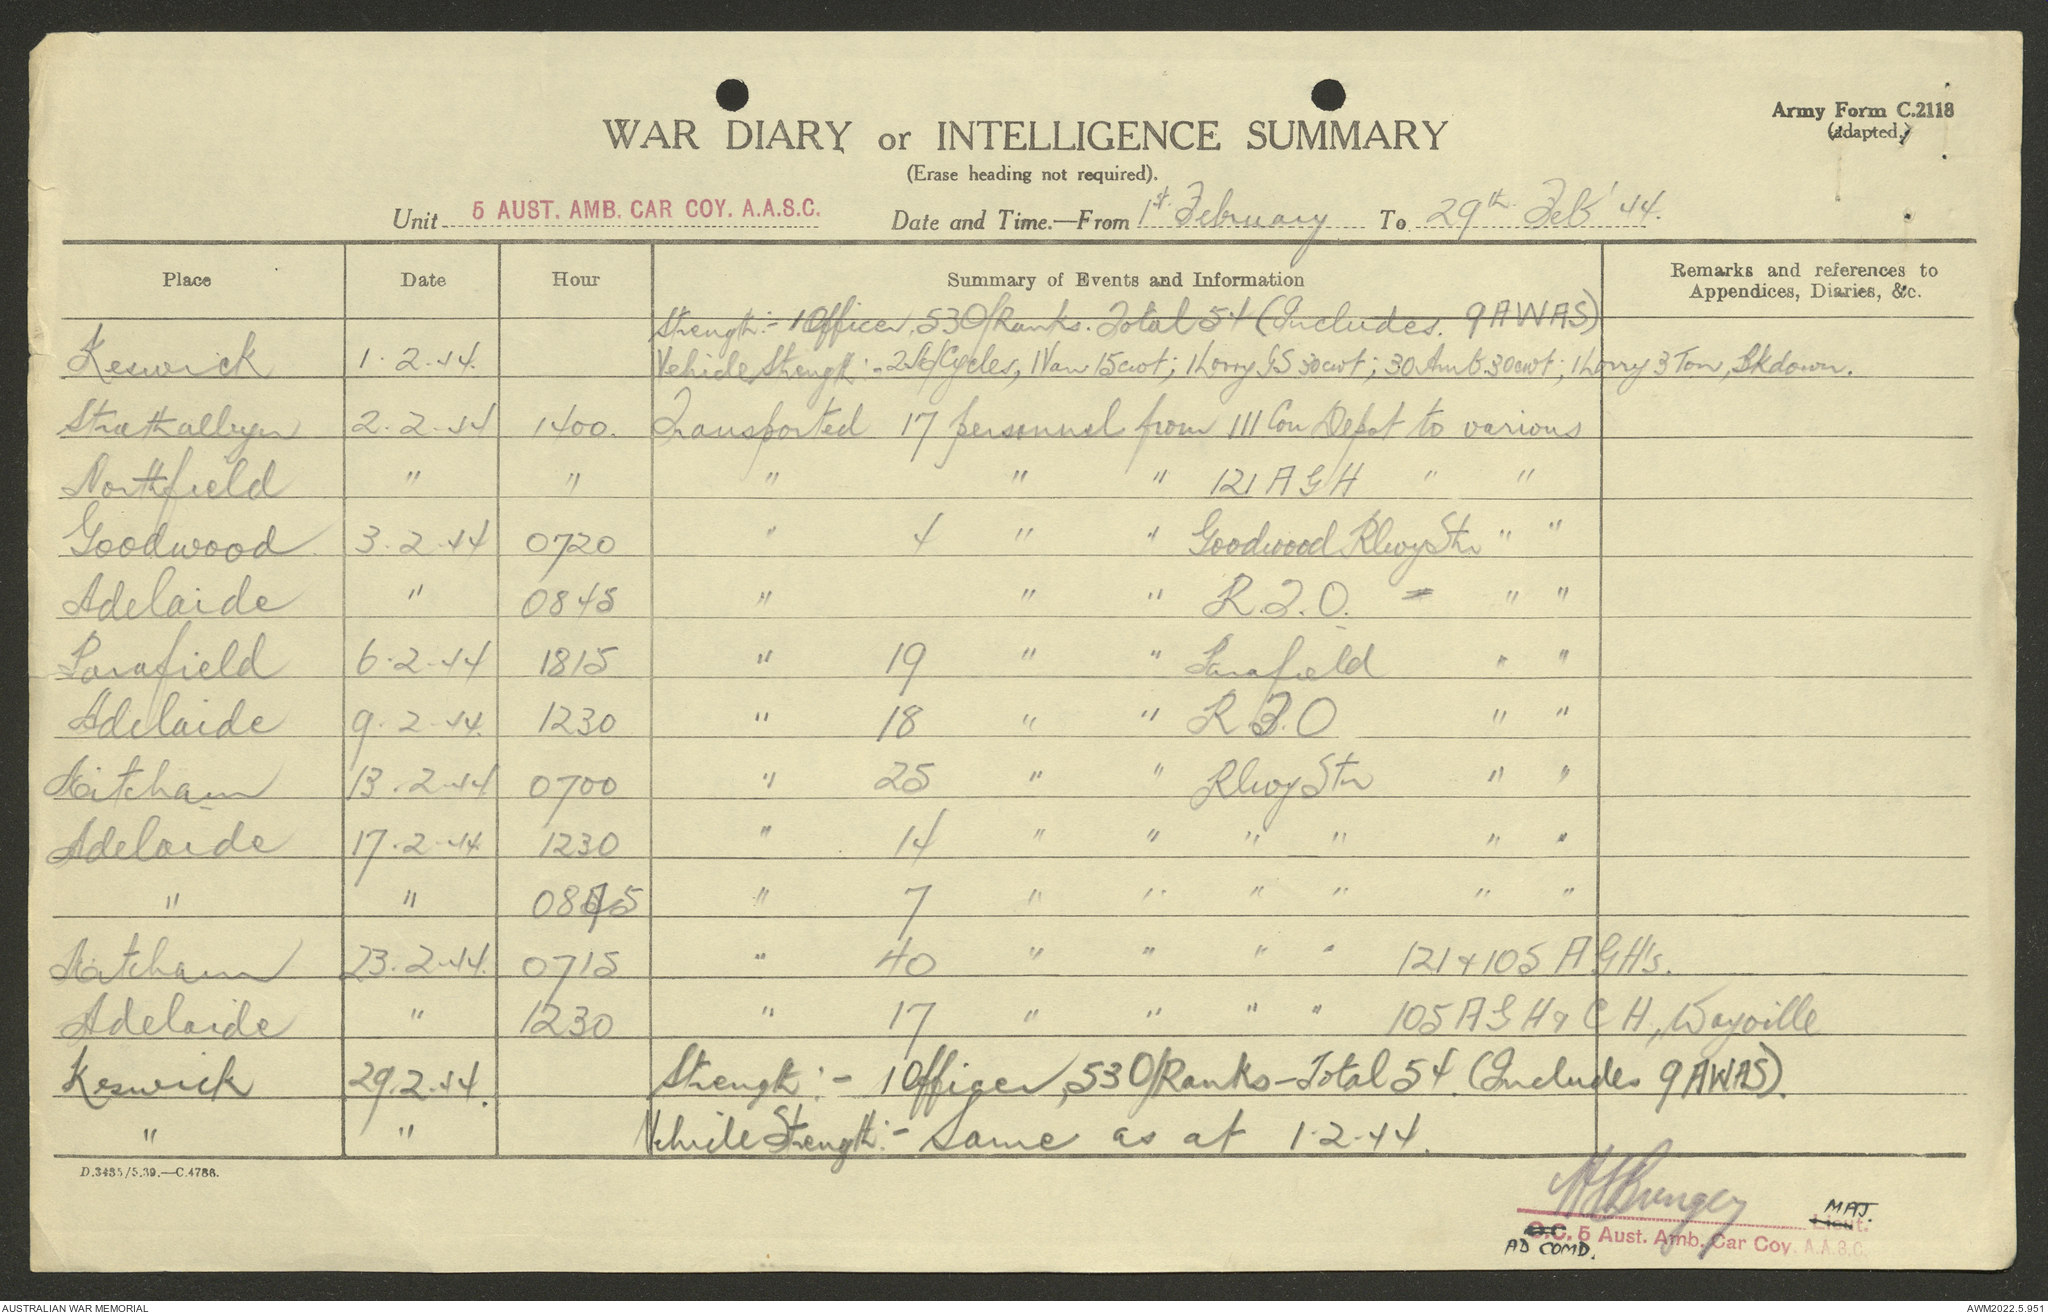 Army Form C.2118
(adapted.)
WAR DIARY or INTELLIGENCE SUMMARY
(Erase heading not required).
Unit 5 AUST. AMB. CAR COY. A.A.S.C. Date and Time.—From 1st February To 29th Feb' 44.
Place Date Hour Summary of Events and Information Remarks and references to Appendices, Diaries, &c.
Strength:- 1 Officer, 53 O/Ranks. Total 54 (Includes. 9 AWAS)
Keswick 1.2.44. Vehicle Strength:- 2 M/Cycles, 1 Van 15cwt; 1 Lorry GS 30cwt; 30 Amb. 30cwt; 1 Lorry 3 Ton, Bkdown.
Strathalbyn 2.2.44 1400. Transported 17 personnel from 111 Con Depot to various
Northfield " " " " " 121 A G H " "
Goodwood 3.2.44 0720 " 4 " " Goodwood Rlwy Stn " "
Adelaide " 0845 " " " R.T.O. " " "
Parafield 6.2.44 1815 " 19 " " Parafield " "
Adelaide 9.2.44. 1230 " 18 " " R.T.O " "
Mitcham 13.2.44 0700 " 25 " " Rlwy Stn " "
Adelaide 17.2.44. 1230 " 14 " " " " " "
" " " 7 " " " " " "
Mitcham 23.2.44. 0715 " 40 " " " " 121 & 105 A G H's.
Adelaide " 1230 " 17 " " " " 105 A G H & C H, Wayville
Keswick 29.2.44. Strength:- 1 Officer, 53 O/Ranks - Total 54. (Includes 9 AWAS).
" " Vehicle Strength:- Same as at 1.2.44.
D.3435/5.39.—C.4788.
MAJ.
Lieut.
O.C. 5 Aust. Amb. Car Coy. A.A.S.C.
AD COMD.
AUSTRALIAN WAR MEMORIAL
AWM2022.5.951